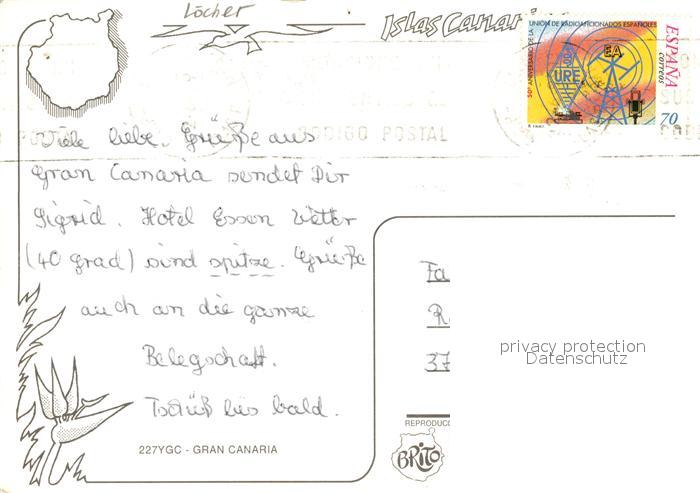 Löcher
Islas Canari
50º ANIVERSARIO DE LA UNIÓN DE RADIOAFICIONADOS ESPAÑOLES
EA
URE
ESPAÑA
correos
70
CODIGO POSTAL
Viele liebe. Grüße aus
Gran Canaria sendet Dir
Sigrid. Hotel Essen Wetter
(40 grad) sind spitze. Grüße
auch an die ganze
Belegschaft.
Tschüß bis bald.
227YGC - GRAN CANARIA
Fa
R
37
privacy protection
Datenschutz
REPRODUCC
BRITO